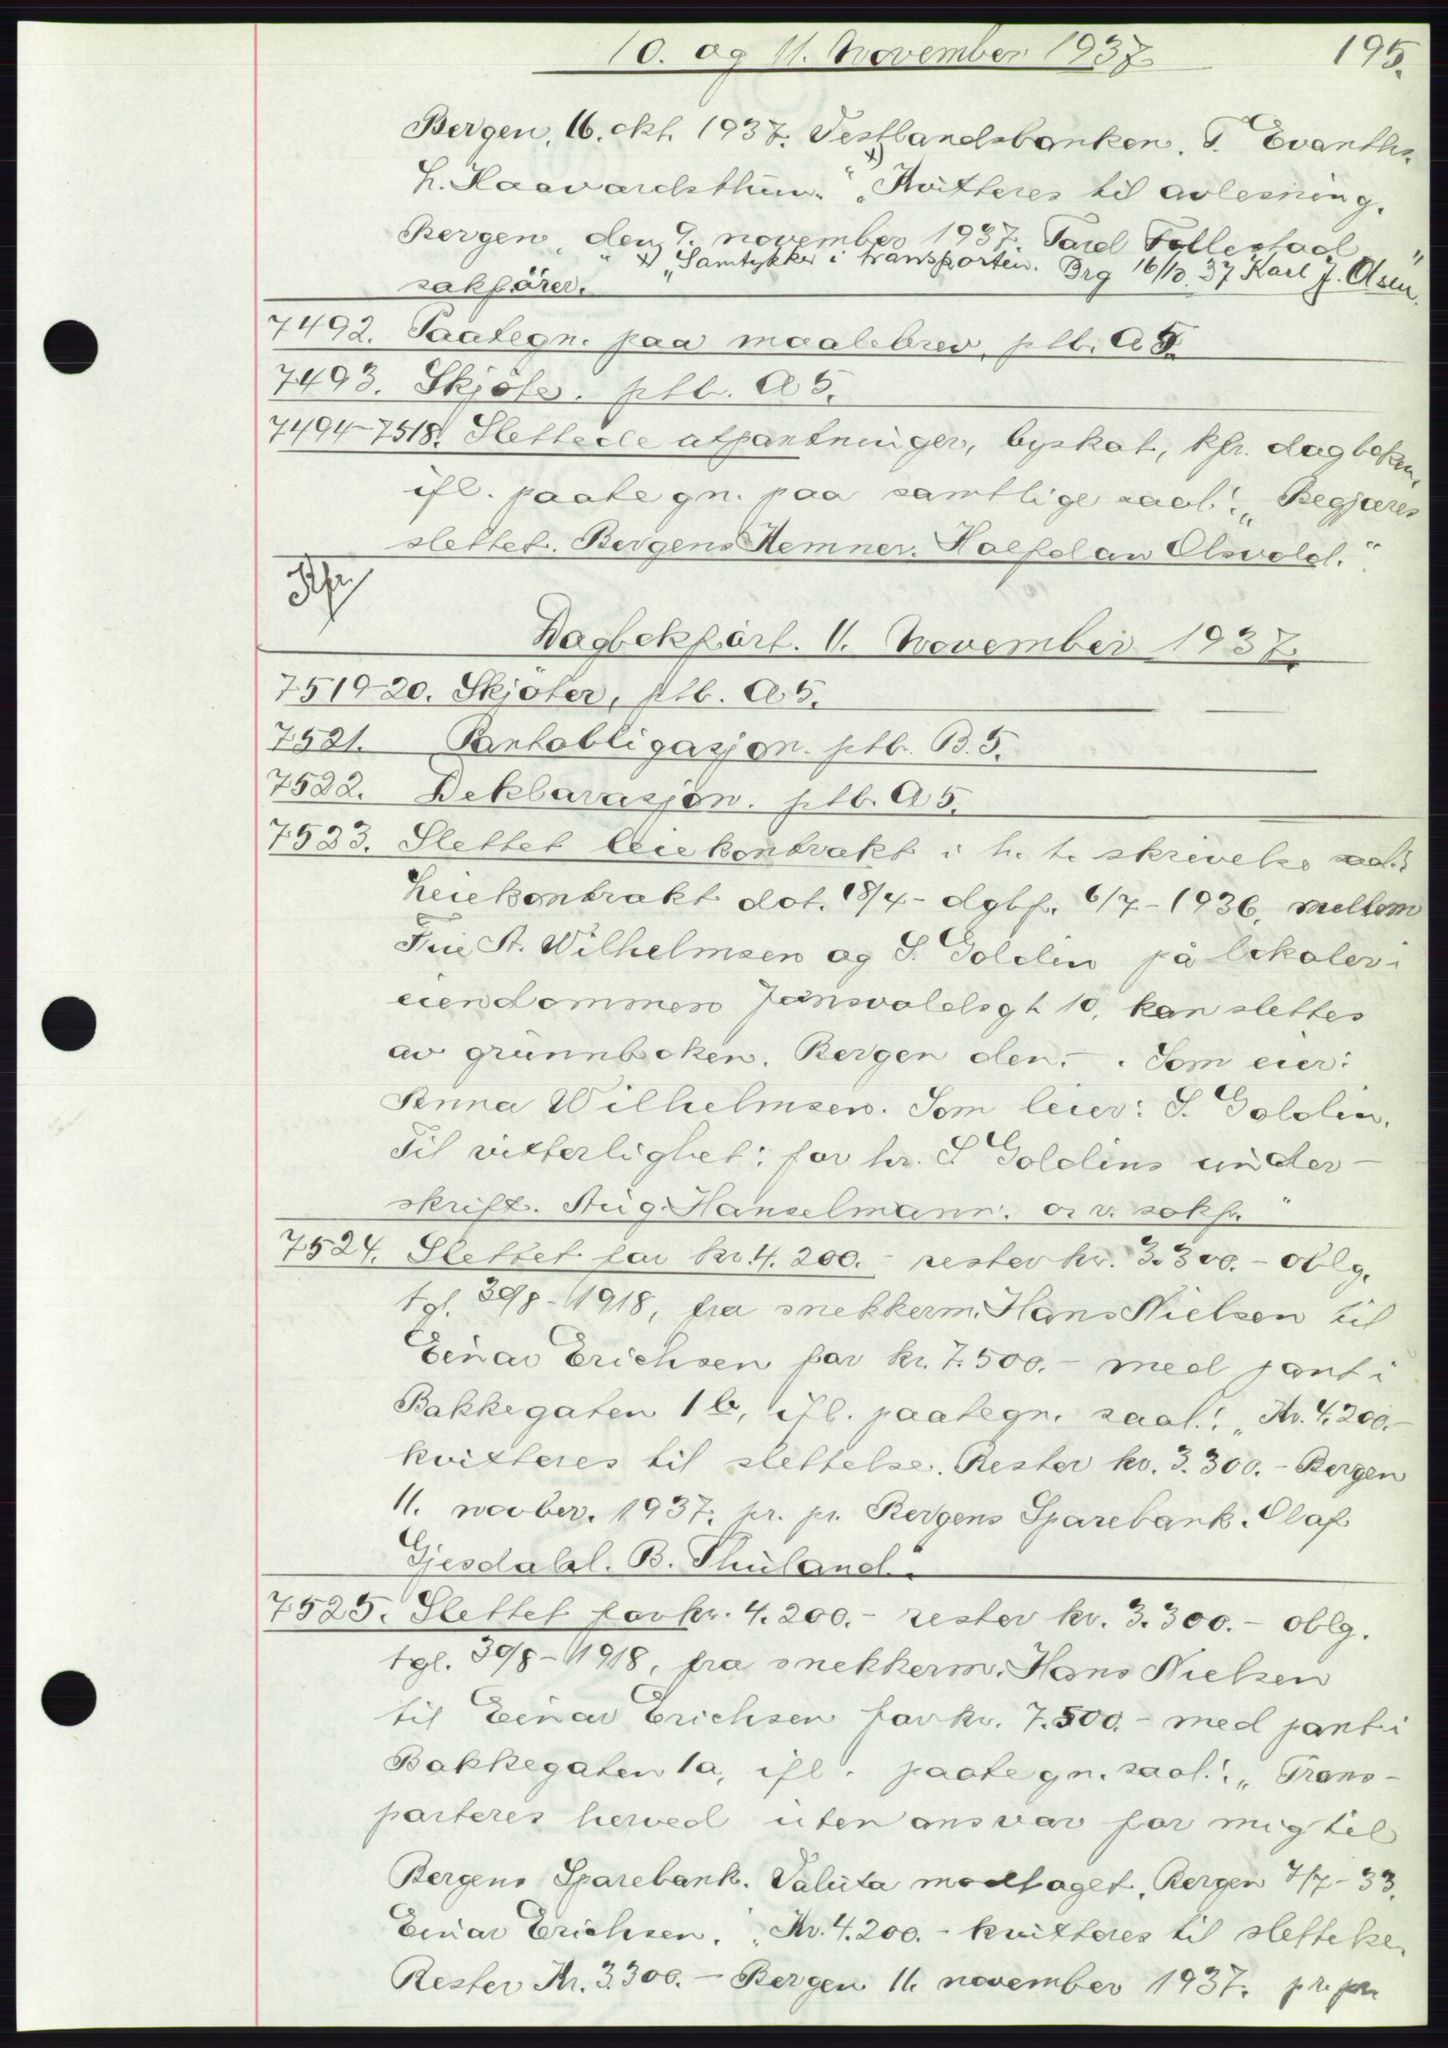 10. og 11. November 1937. 195.
Bergen, 16. okt. 1937. Vestlandsbanken. T. Evanth.
L. Haavardsthun." x) "Kvitteres til avlesning.
Bergen, den 9. november 1937. Tard Follestad
sakfører." x) "Samtykker i transporten. Brg 16/10. 37 Karl J. Olsen."
7492. Paategn. paa maalebrev, ptb. A 5.
7493. Skjöte. ptb. A 5.
7494-7518. Slettede utpantninger, byskat, kfr. dagboken,
ifl. paategn. paa samtlige saal: "Begjæres
slettet. Bergens Kemner. Halfdan Olsvold."
Kfr
Dagbokført. 11. November 1937.
7519-20. Skjöter, ptb. A 5.
7521. Pantobligasjon. ptb. B. 5.
7522. Deklarasjon. ptb. A 5.
7523. Slettet leiekontrakt i h. t. skrivelse saal:
Leiekontrakt dat. 18/4 - dgbf. 6/7 - 1936, mellem
Frue A. Wilhelmsen og S. Goldin på lokaler i
eiendommen Jonsvoldsgt 10, kan slettes
av grunnboken. Bergen den. - . Som eier:
Anna Wilhelmsen. Som leier: S. Goldin.
Til vitterlighet: for hr. S Goldins under-
skrift. Aug. Hanselmann. o. r. sakf."
7524. Slettet for kr. 4.200. - rester kr. 3.300. - oblg.
tgl. 30/8 - 1918, fra snekkerm. Hans Nielsen til
Einar Erichsen for kr. 7.500. - med pant i
Bakkegaten 1 b, ifl. paategn. saal.: "Kr. 4.200.-
kvitteres til slettelse. Rester kr. 3.300. - Bergen
11. novber. 1937. pr. pr. Bergens Sparebank. Olaf
Gjesdahl. B. Thuland."
7525. Slettet for kr. 4.200. - rester kr. 3.300. - oblg.
tgl. 30/8 - 1918, fra snekkerm. Hans Nielsen
til Einar Erichsen for kr. 7.500. - med pant i
Bakkegaten 1a, ifl. paategn. saal.: "Trans-
porteres herved uten ansvar for mig til
Bergens Sparebank. Valuta modtaget. Bergen 7/7 - 33.
Einar Erichsen." "Kr. 4.200. - kvitteres til slettelse.
Rester Kr. 3.300. - Bergen 11. november 1937. pr. pr.